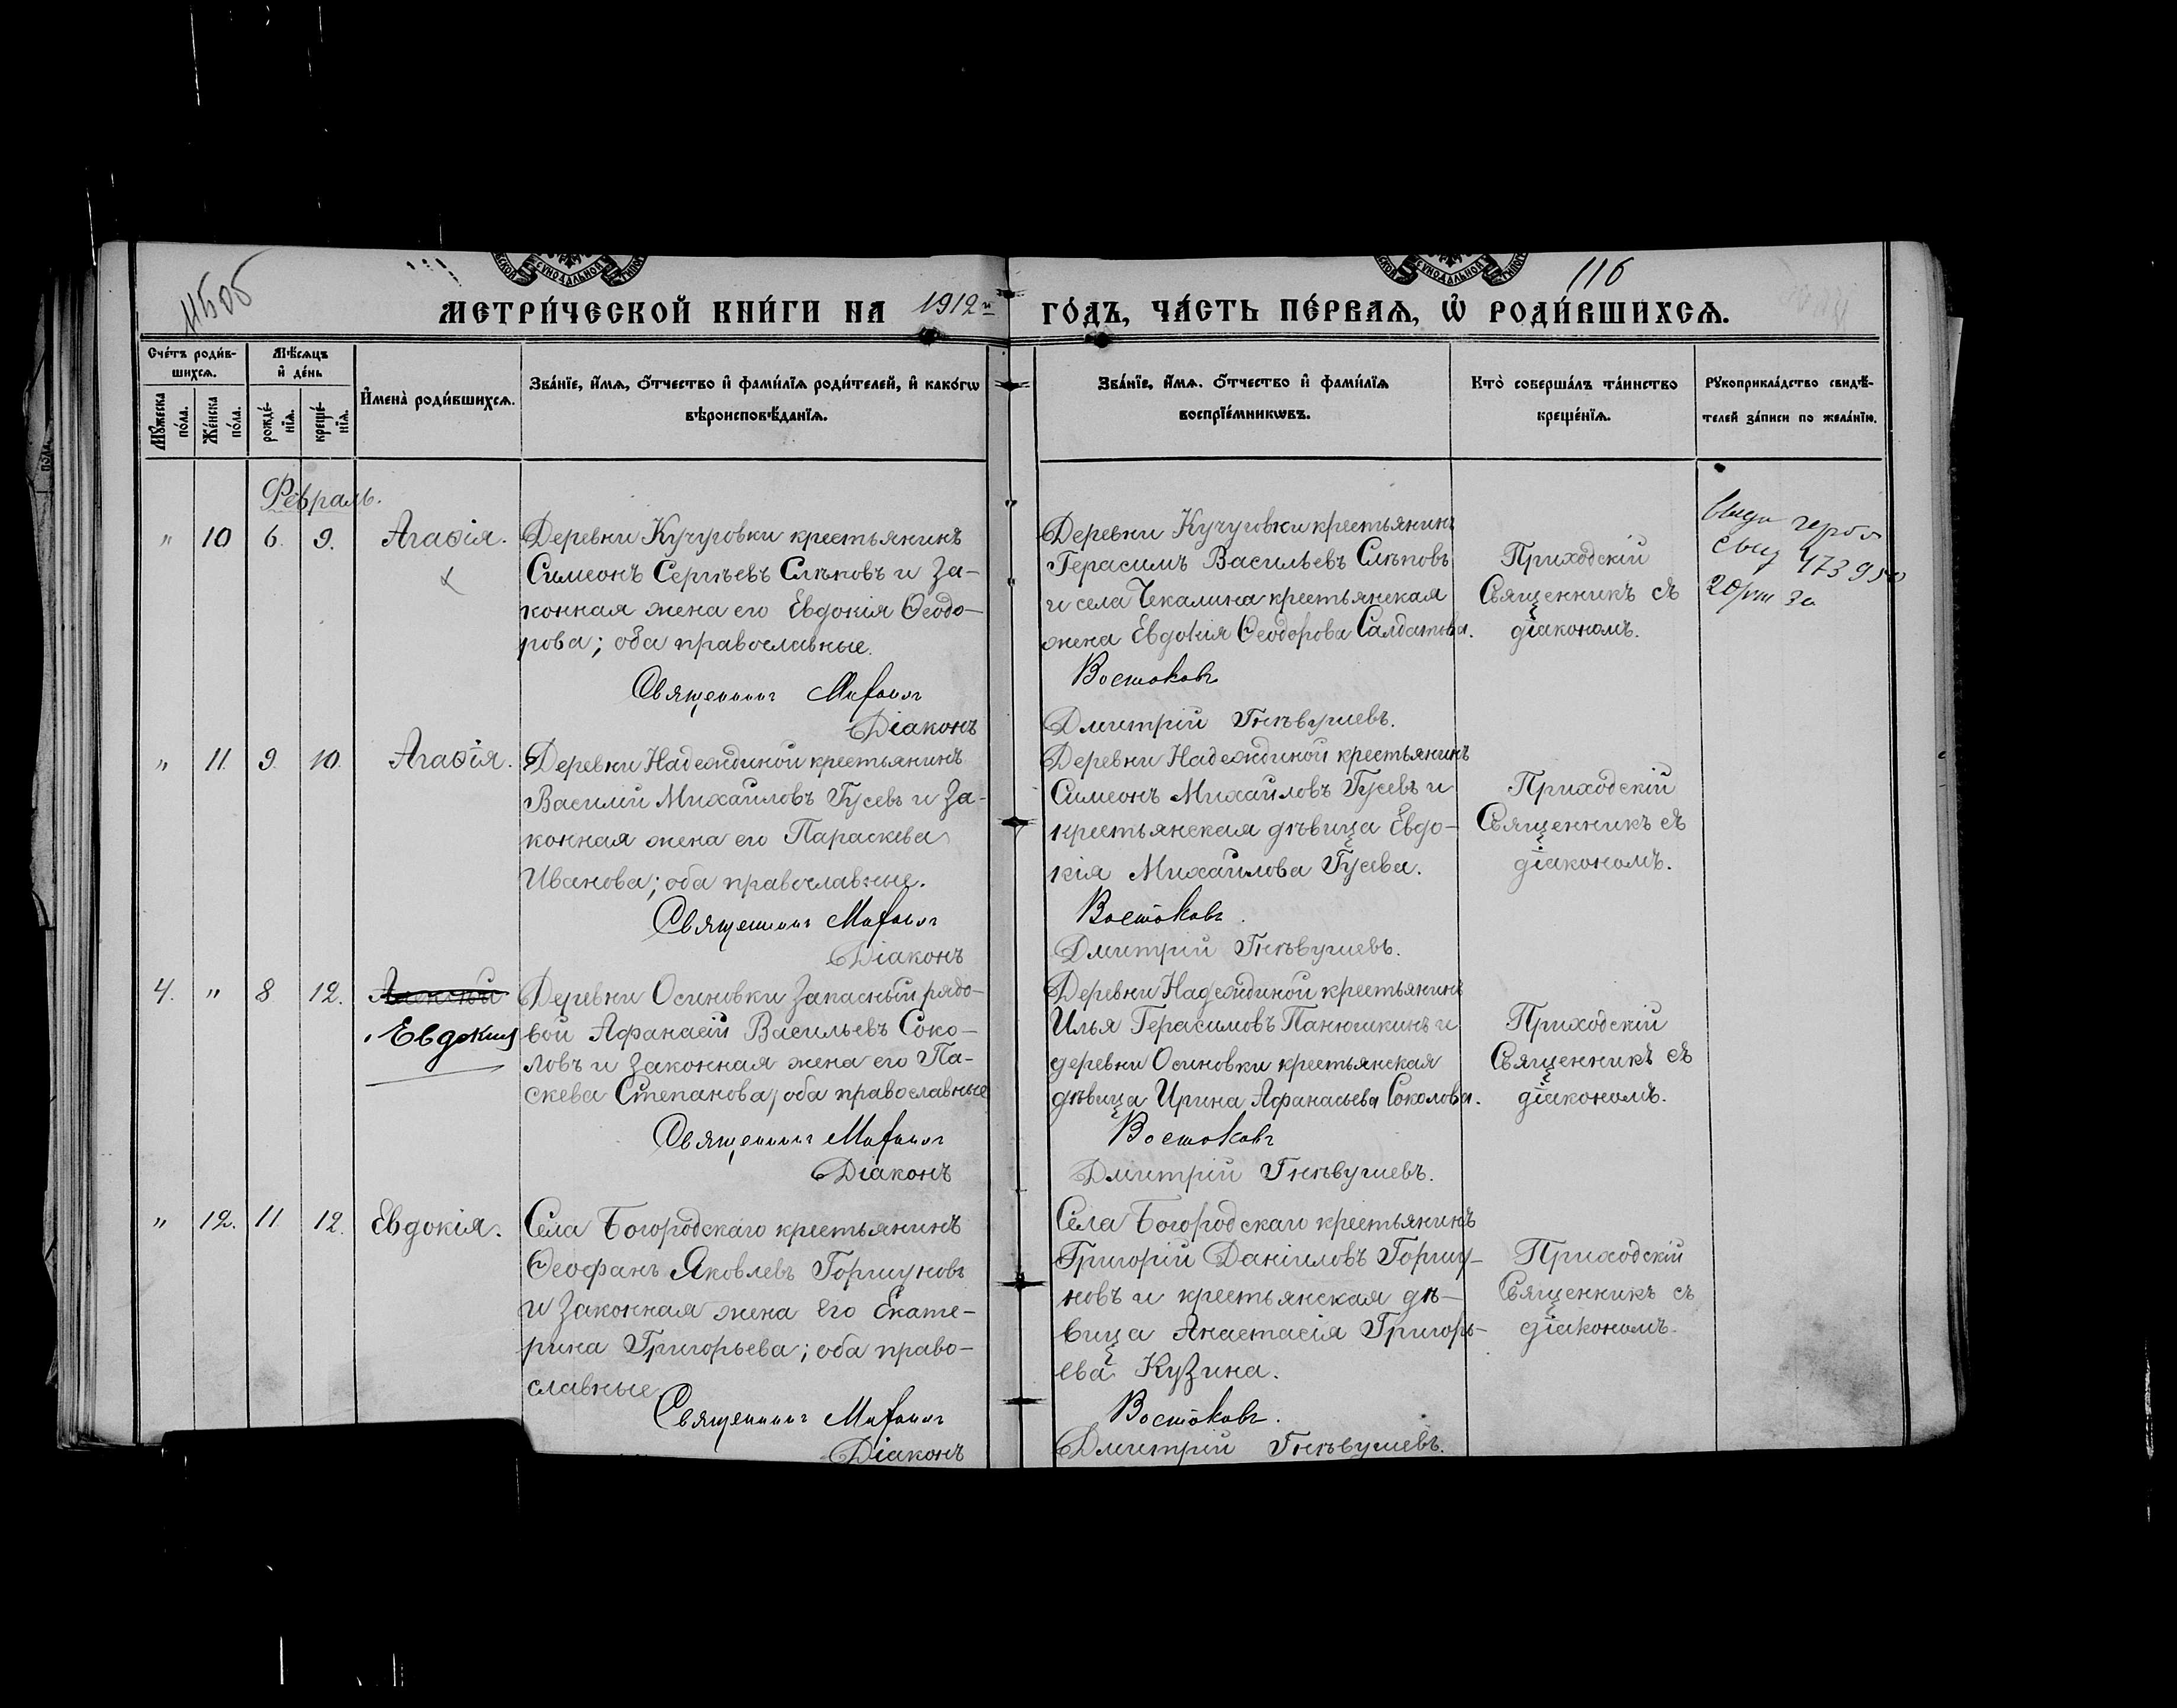 115об
116
МЕТРИ́ЧЕСКОЙ КНИ́ГИ НА 1912й ГО́ДЪ, ЧА́СТЬ ПЕ́РВАѦ, Ѽ РОДИ́ВШИХСѦ.
Сче́тъ роди́в-
шихсѧ.
Мѣ́сѧцъ
и҆ де́нь
Мꙋ́жеска
по́ла.
Же́нска
по́ла.
рожде́-
нїѧ.
креще́-
нїѧ.
И҆мена̀ роди́вшихсѧ.
Зва́нїе, и҆́мѧ, ѻ҆́тчество и҆ фами́лїѧ роди́телей, и҆ како́гѡ
вѣроисповѣ́данїѧ.
Зва́нїе, и҆́мѧ. ѻ҆́тчество и҆ фами́лїѧ
воспрїе́мникѡвъ.
Кто̀ соверша́лъ та́инство
креще́нїѧ.
Рꙋкоприкла́дство свидѣ́-
телей за́писи по жела́нїю.
Февраль.
" 10 6. 9. Агаѳія.
Деревни Кучуговки крестьянинъ
Симеонъ Сергѣевъ Слѣповъ и за-
конная жена его Евдокія Ѳеодо-
рова; оба православные.
Священникъ
Діаконъ
Деревни Кучуговки крестьянинъ
Герасимъ Васильевъ Слѣповъ
и села Чекалина крестьянская
жена Евдокія Ѳеодорова Салдатова.
Востоковъ
Дмитрій Гнѣвушевъ.
Приходскій
Священникъ съ
діакономъ.
" 11. 9. 10. Агаѳія.
Деревни Надеждиной крестьянинъ
Василій Михайловъ Гусевъ и за-
конная жена его Параскева
Иванова; оба православные.
Священникъ
Діаконъ
Деревни Надеждиной крестьянинъ
Симеонъ Михайловъ Гусевъ и
крестьянская дѣвица Евдо-
кія Михайлова Гусева.
Востоковъ.
Дмитрій Гнѣвушевъ.
Приходскій
Священникъ съ
діакономъ.
4. " 8 12. Алексѣй
Евдокия
Деревни Осиновки запасный рядо-
вой Афанасій Васильевъ Соко-
ловъ и законная жена его Па-
скева Степанова; оба православные
Священникъ
Діаконъ
Деревни Надеждиной крестьянинъ
Илья Герасимовъ Панюшкинъ и
деревни Осиновки крестьянская
дѣвица Ирина Афанасьева Соколова.
Востоковъ
Дмитрій Гнѣвушевъ.
Приходскій
Священникъ съ
діакономъ.
" 12. 11. 12. Евдокія.
Села Богородскаго крестьянинъ
Ѳеофанъ Яковлевъ Горшуновъ
и законная жена его Екате-
рина Григорьева; оба право-
славные
Священникъ
Діаконъ
Села Богородскаго крестьянинъ
Григорій Даніиловъ Горшу-
новъ и крестьянская дѣ-
вица Анастасія Григорь-
ева Кузина.
Востоковъ.
Дмитрій Гнѣвушевъ.
Приходскій
Священникъ съ
діакономъ.